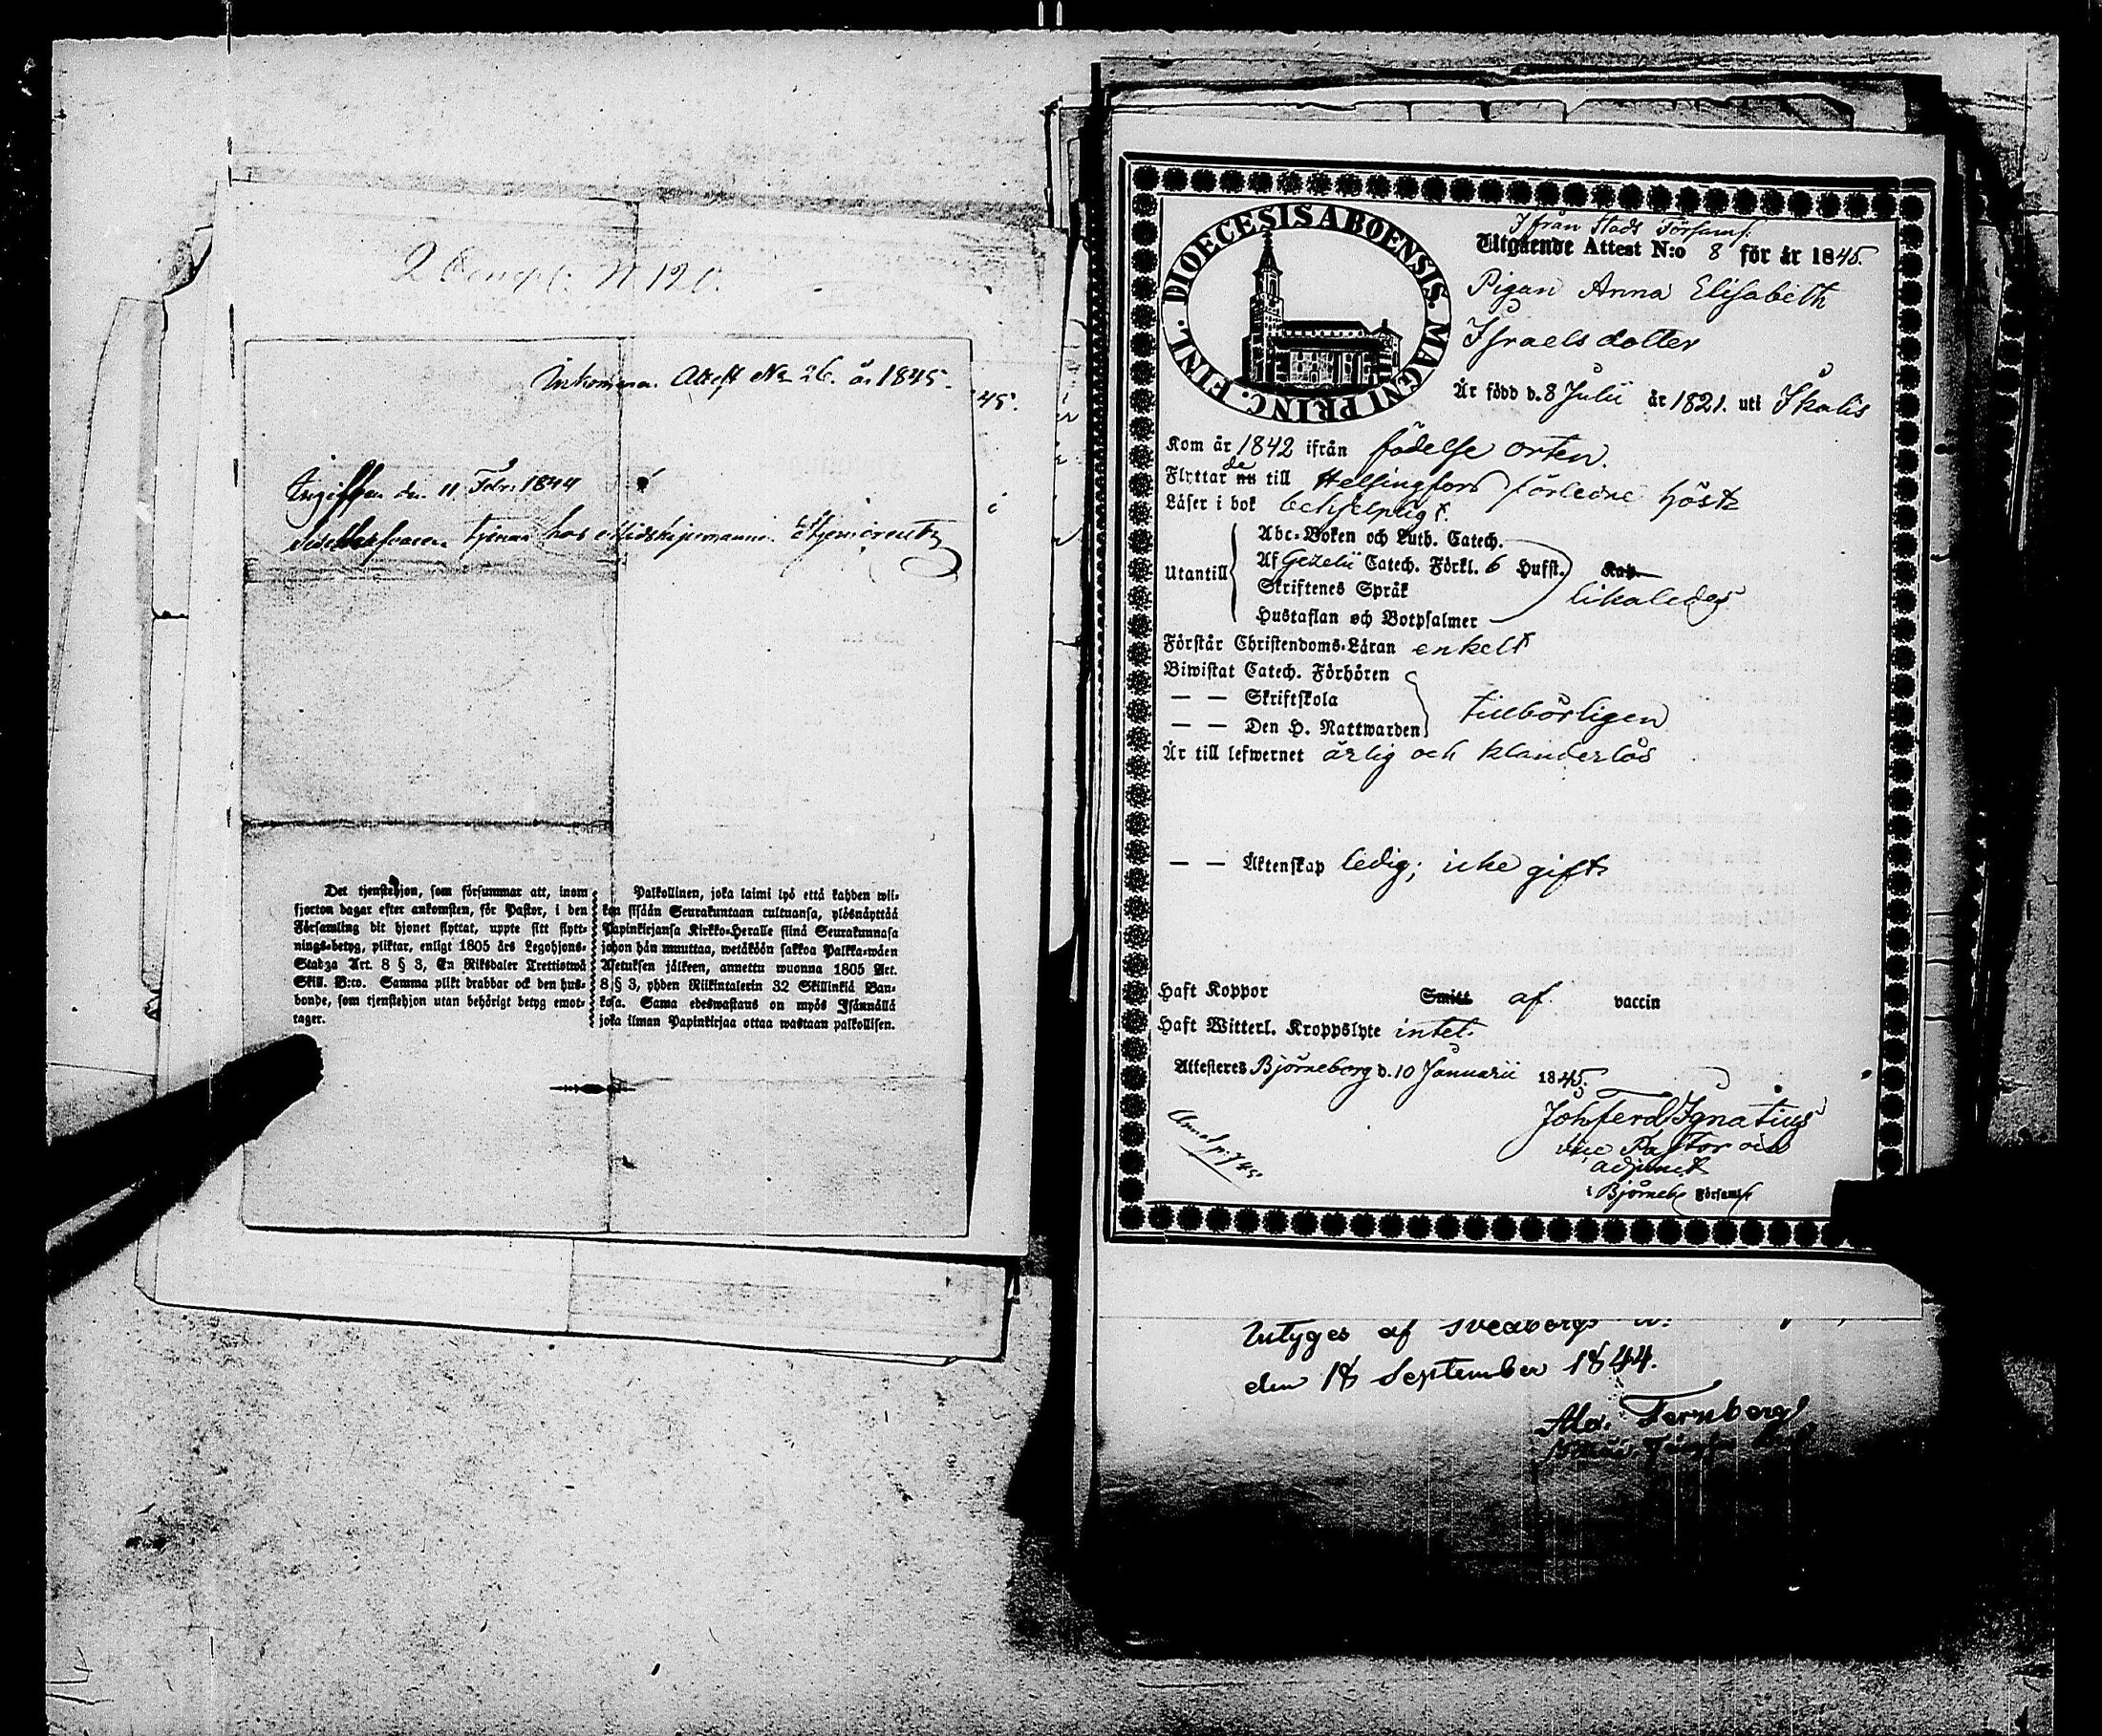 2 Compl. N 120.
Inkommen Attest No 26. år 1845.
45.
den 11 Febr. 1844
tjenar hos
Det tjenstehjon, som försummar att, inom
fjorton dagar efter ankomsten, för Pastor, i den
Församling dit hjonet flyttat, uppte sitt flytt-
nings-betyg, pliktar, enligt 1805 års Legohjons-
Stadga Art. 8 § 3, En Riksdaler Trettiotwå
Skill. B:co. Samma plikt drabbar ock den hus-
bonde, som tjenstehjon utan behörigt betyg emot-
tager.
Palkollinen, joka laimi lyö että kahden wii-
kon sisään Seurakuntaan tultuansa, ylösnäyttää
Papinkirjansa Kirkko-Heralle siinä Seurakunnasa
johon hän muuttaa, wetäköön sakkoa Palkka-wäen
Asetuksen jälkeen, annettu wuonna 1805 Art.
8 § 3, yhden Riikintalerin 32 Skillinkiä Ban-
kosa. Sama edeswastaus on myös Isännällä
joka ilman Papinkirjaa ottaa wastaan palkollisen.
DIOECESIS ABOENSIS. MAGNI PRINC. FINL.
Ifrån Stads Församl.
Utgående Attest N:o 8 för år 1845.
Pigan Anna Elisabeth
Israelsdotter
Är född d. 8 Julii år 1821. uti Ikalis
Kom år 1842 ifrån födelse orten.
Flyttar de nu till Helsingfors förledne höst
Läser i bok behjelpligt.
Utantill
Abc-Boken och Luth. Catech.
Af Gezelii Catech. Förkl. 6 Hufst. Kap.
Skriftenes Språk likaledes
Hustaflan och Botpsalmer
Förstår Christendoms-Läran enkelt
Biwistat Catech. Förhören
— — Skriftskola tillbörligen
— — Den H. Nattwarden
Är till lefwernet ärlig och klanderlös
— — Äktenskap ledig; icke gift
Haft Koppor Smitt af vaccin
Haft Witterl. Kroppslyte intet.
Attesteres Björneborg d. 10 Januarii 1845.
Joh Ferd Ignatius
vice Pastor och
adjunct
i Björneb Församl
Intyges af Sveaborgs
den 18 September 1844.
Alex. Fernberg